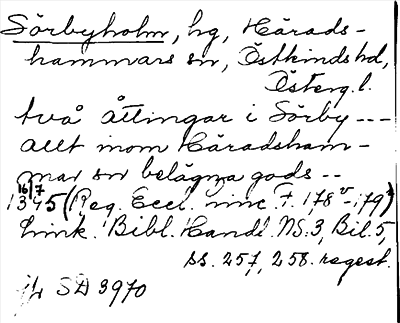 Sörbyholm, hg, Härads-
hammars sn, Östkinds hd,
Österg. l.
två åttingar i Sörby ---
allt inom Häradsham-
mar sn belägna gods --
16/7
1345 (Reg. Eccl. Linc. F. 178v-179)
Link. Bibl. Handl. NS:3, Bil. 5,
ss. 257, 258. regest.
SD 3970